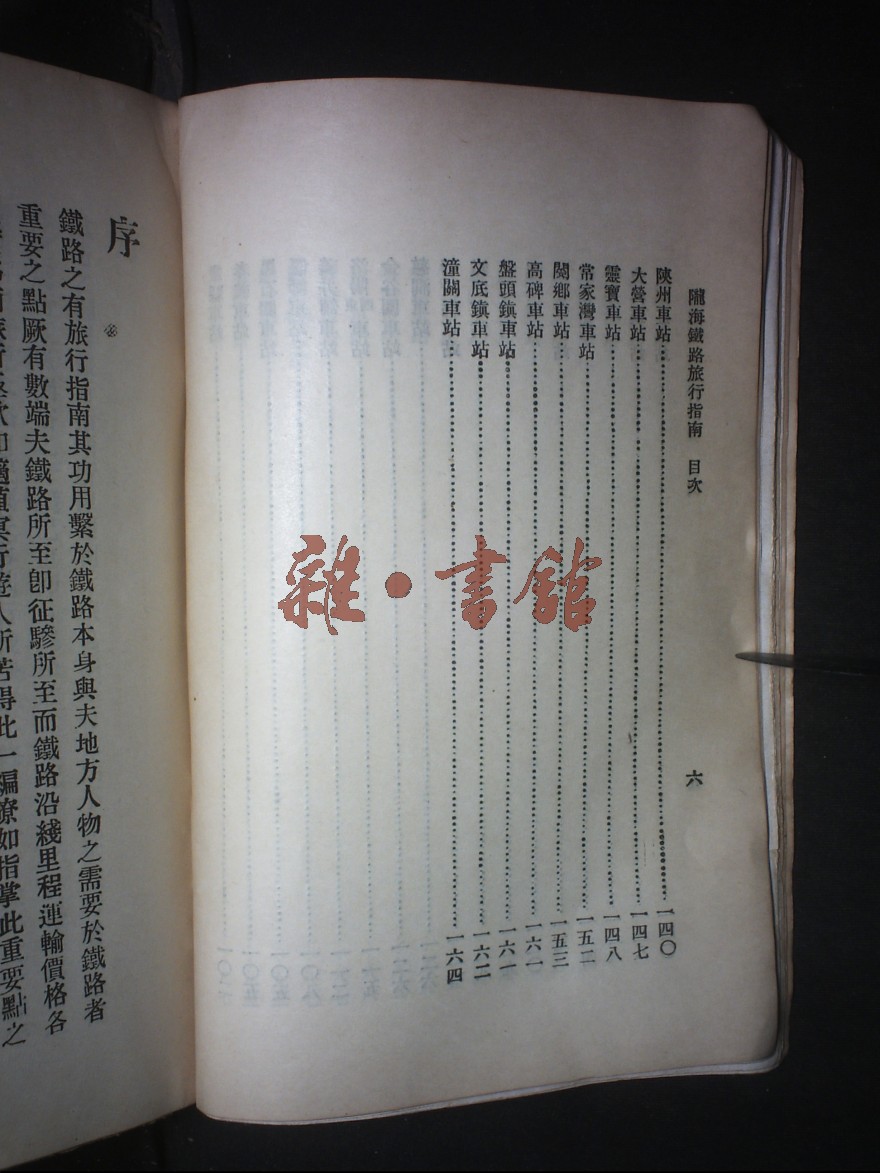 隴海鐵路旅行指南　目次
六
陝州車站 一四〇
大營車站 一四七
靈寶車站 一四八
常家灣車站 一五二
閿鄉車站 一五三
高碑車站 一六一
盤頭鎮車站 一六一
文底鎮車站 一六二
潼關車站 一六四
序
鐵路之有旅行指南其功用繫於鐵路本身與夫地方人物之需要於鐵路者
重要之點厥有數端夫鐵路所至卽征驂所至而鐵路沿綫里程運輸價格各
雜·書館